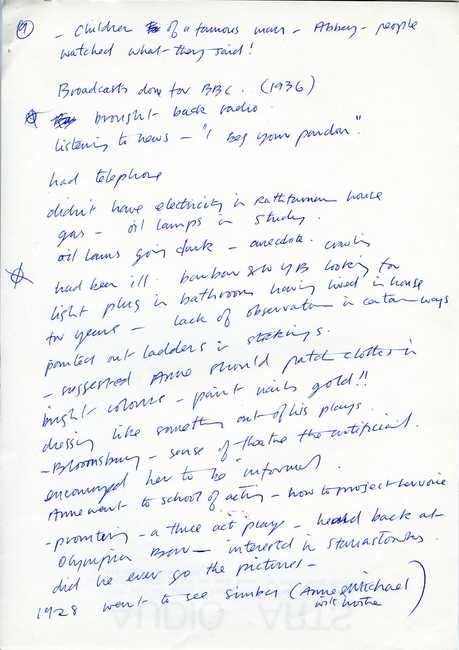 9
- Children of a famous man - Abbey - people
watched what they said!
Broadcasts done for BBC. (1936)
brought back radio.
listening to news - "I beg your pardon".
had telephone
didn't have electricity in Rathfarnham house
gas - oil lamps in study.
oil lamps going dark - anecdote. crawling
had been ill. WYB looking for
light plug in bathroom having lived in house
for years - lack of observation in certain ways
pointed out ladders in stockings.
- suggested Anne should patch clothes in
bright colours - paint nails gold!!
dressing like something out of his plays.
- Bloomsbury - sense of theatre the artificial.
encouraged her to be "informed"
Anne went to school of acting - how to project her voice
- prompting - a three act play - heard back at
Olympia - interested in
did he ever go the pictures -
1928 went to see (Anne & Michael
with mother)
AUDIO ARTS